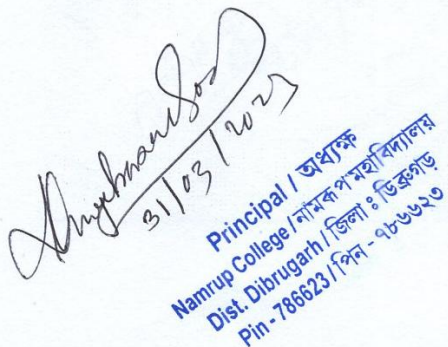 31/03/2023
Principal / অধ্যক্ষ
Namrup College / নামৰূপ মহাবিদ্যালয়
Dist. Dibrugarh / জিলা : ডিব্ৰুগড়
Pin - 786623 / পিন - ৭৮৬৬২৩